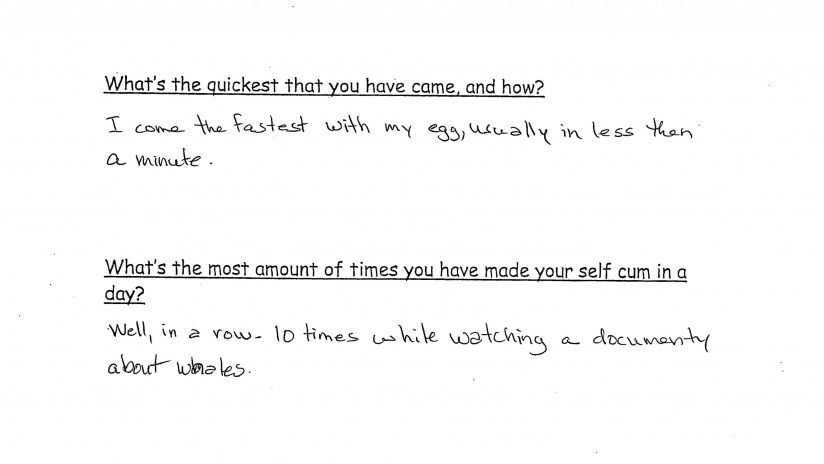 What's the quickest that you have came, and how?
I come the fastest with my egg, usually in less than
a minute.
What's the most amount of times you have made your self cum in a
day?
Well, in a row - 10 times while watching a documenty
about whales.